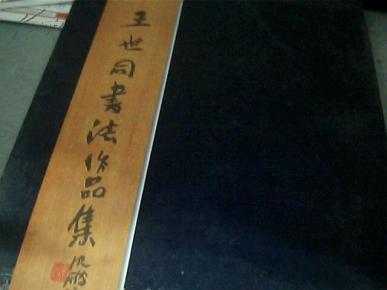 王世同書法作品集